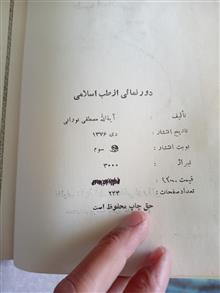 دورنمائی از طب اسلامی
تألیف : آیة الله مصطفی نورانی
تاریخ انتشار : دی ۱۳۷۶
نوبت انتشار : سوم
تیراژ : ۳۰۰۰
قیمت
تعداد صفحات : ۲۴۳
حق چاپ محفوظ است